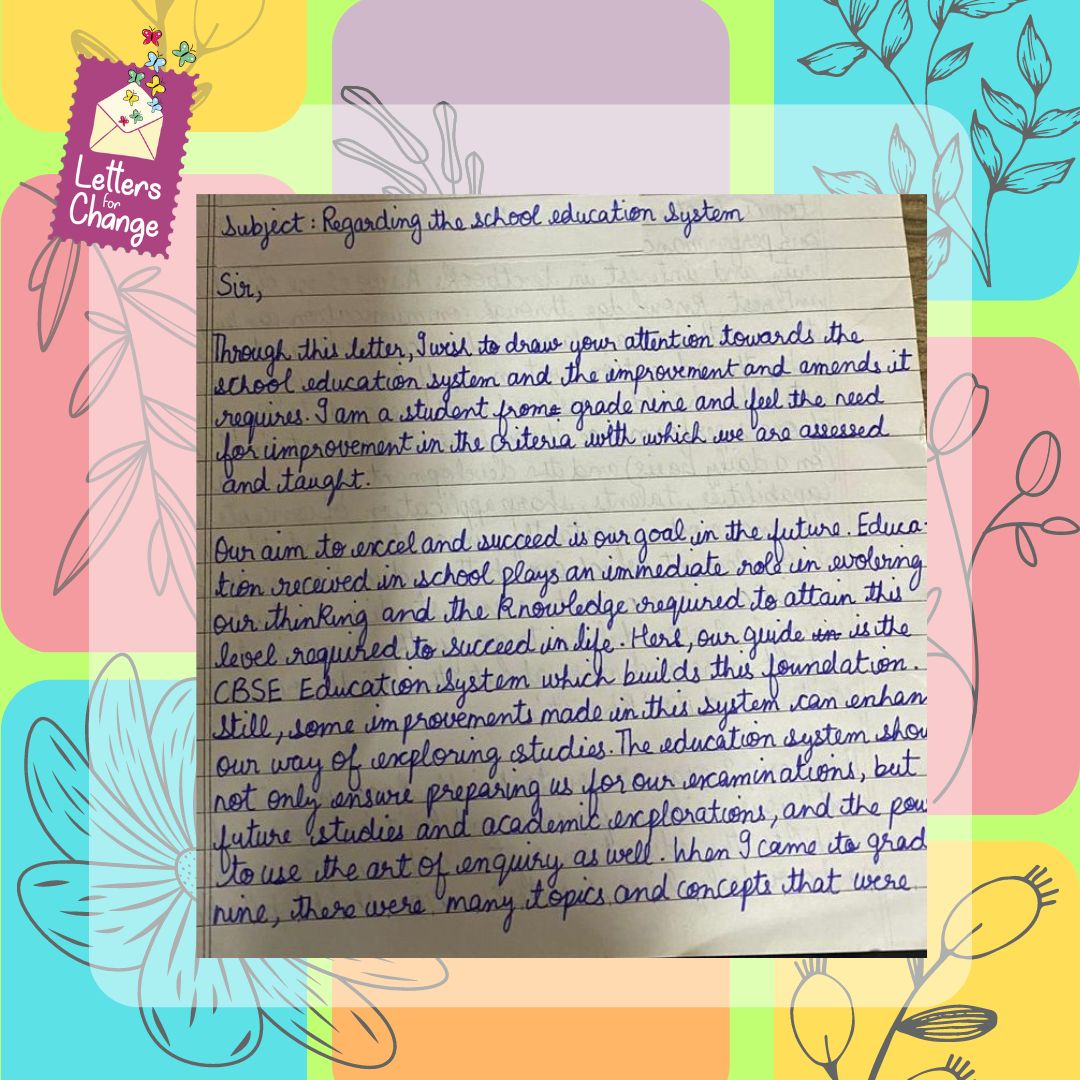 Letters
for
Change
Subject : Regarding the school education system
Sir,
Through this letter, I wish to draw your attention towards the
school education system and the improvement and amends it
requires. I am a student from grade nine and feel the need
for improvement in the criteria with which we are assessed
and taught.
Our aim to excel and succeed is our goal in the future. Educa-
tion received in school plays an immediate role in evolering
our thinking and the knowledge required to attain this
level required to succeed in life. Here, our guide in is the
CBSE Education system which builds this foundation.
Still, some improvements made in this system can enhan
our way of exploring studies. The education system shou
not only ensure preparing us for our examinations, but
future studies and academic explorations, and the pow
to use the art of enquiry as well. When I came to grad
nine, there were many topics and concepts that were